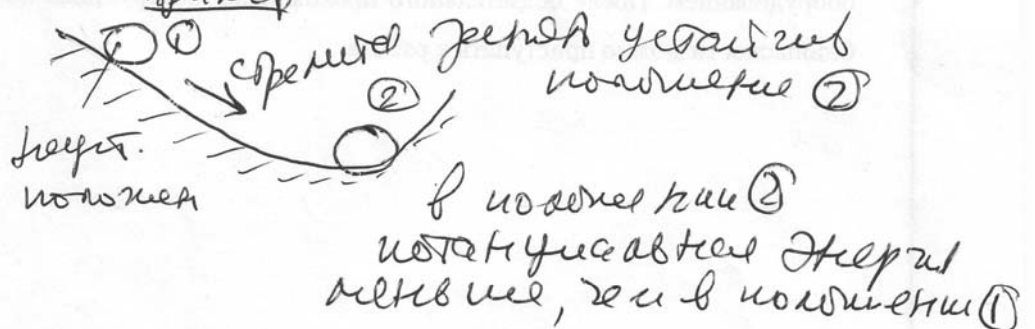 Пример
① ① стремится занять устойчив
положение ②
②
неуст.
положен
в положении ②
потенциальная энергия
меньше, чем в положении ①